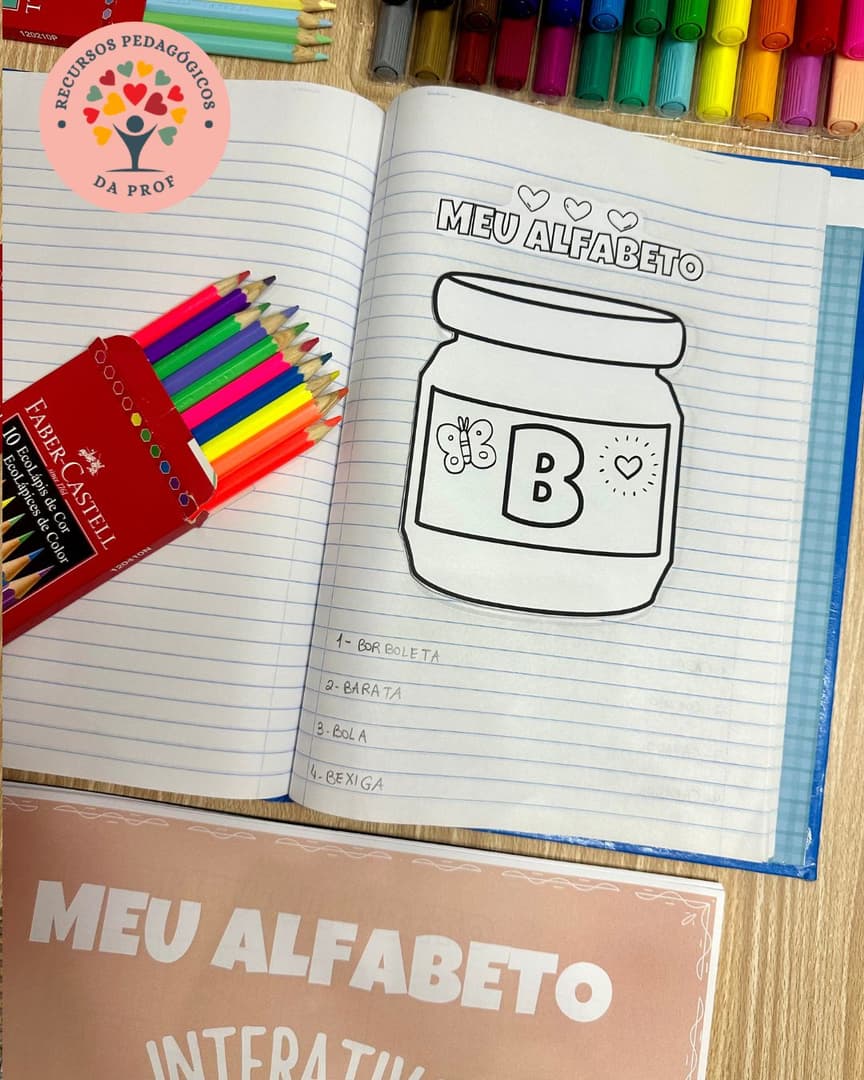 120210P
RECURSOS PEDAGÓGICOS
DA PROF
MEU ALFABETO
B
FABER-CASTELL
SINCE 1761
10 EcoLápis de Cor
EcoLápices de Color
120410N
1- BORBOLETA
2- BARATA
3- BOLA
4- BEXIGA
MEU ALFABETO